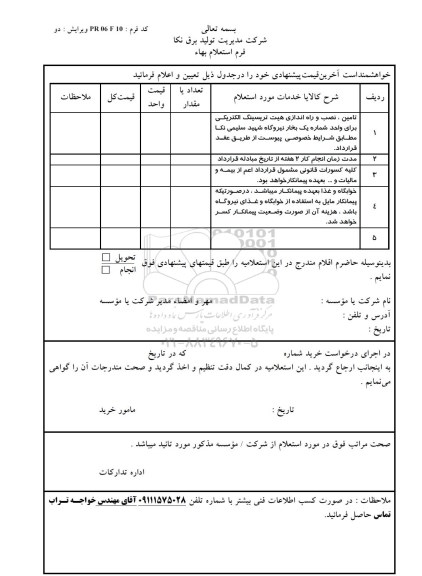 بسمه تعالی
کد فرم : PR 06 F 10 ویرایش : دو
شرکت مدیریت تولید برق نکا
فرم استعلام بهاء
خواهشمنداست آخرین‌قیمت‌پیشنهادی خود را درجدول ذیل تعیین و اعلام فرمائید
ردیف
شرح کالایا خدمات مورد استعلام
تعداد یا مقدار
قیمت واحد
قیمت‌کل
ملاحظات
۱
تامین ، نصب و راه اندازی هیت تریسینگ الکتریکی
برای واحد شماره یک بخار نیروگاه شهید سلیمی نکا
مطابق شرایط خصوصی پیوست از طریق عقد
قرارداد.
۲
مدت زمان انجام کار ۲ هفته از تاریخ مبادله قرارداد
۳
کلیه کسورات قانونی مشمول قرارداد اعم از بیمه و
مالیات و ... بعهده پیمانکارخواهد بود.
٤
خوابگاه و غذا بعهده پیمانکار میباشد . درصورتیکه
پیمانکار مایل به استفاده از خوابگاه و غذای نیروگاه
باشد ، هزینه آن از صورت وضعیت پیمانکار کسر
خواهد شد.
۵
بدینوسیله حاضرم اقلام مندرج در این استعلامیه را طبق قیمتهای پیشنهادی فوق
تحویل
انجام
نمایم .
ParsNamadData
نام شرکت یا مؤسسه :
مهر و امضاء مدیر شرکت یا مؤسسه
آدرس و تلفن :
پایگاه اطلاع رسانی مناقصه و مزایده
تاریخ :
۰۲۱-۸۸۳۴۹۶۷۰-۵
در اجرای درخواست خرید شماره
که در تاریخ
به اینجانب ارجاع گردید . این استعلامیه در کمال دقت تنظیم و اخذ گردید و صحت مندرجات آن را گواهی
می‌نمایم .
تاریخ :
مامور خرید
صحت مراتب فوق در مورد استعلام از شرکت / مؤسسه مذکور مورد تائید میباشد .
اداره تدارکات
ملاحظات : در صورت کسب اطلاعات فنی بیشتر با شماره تلفن ۰۹۱۱۱۵۷۵۰۲۸ آقای مهندس خواجه تراب
تماس حاصل فرمائید.